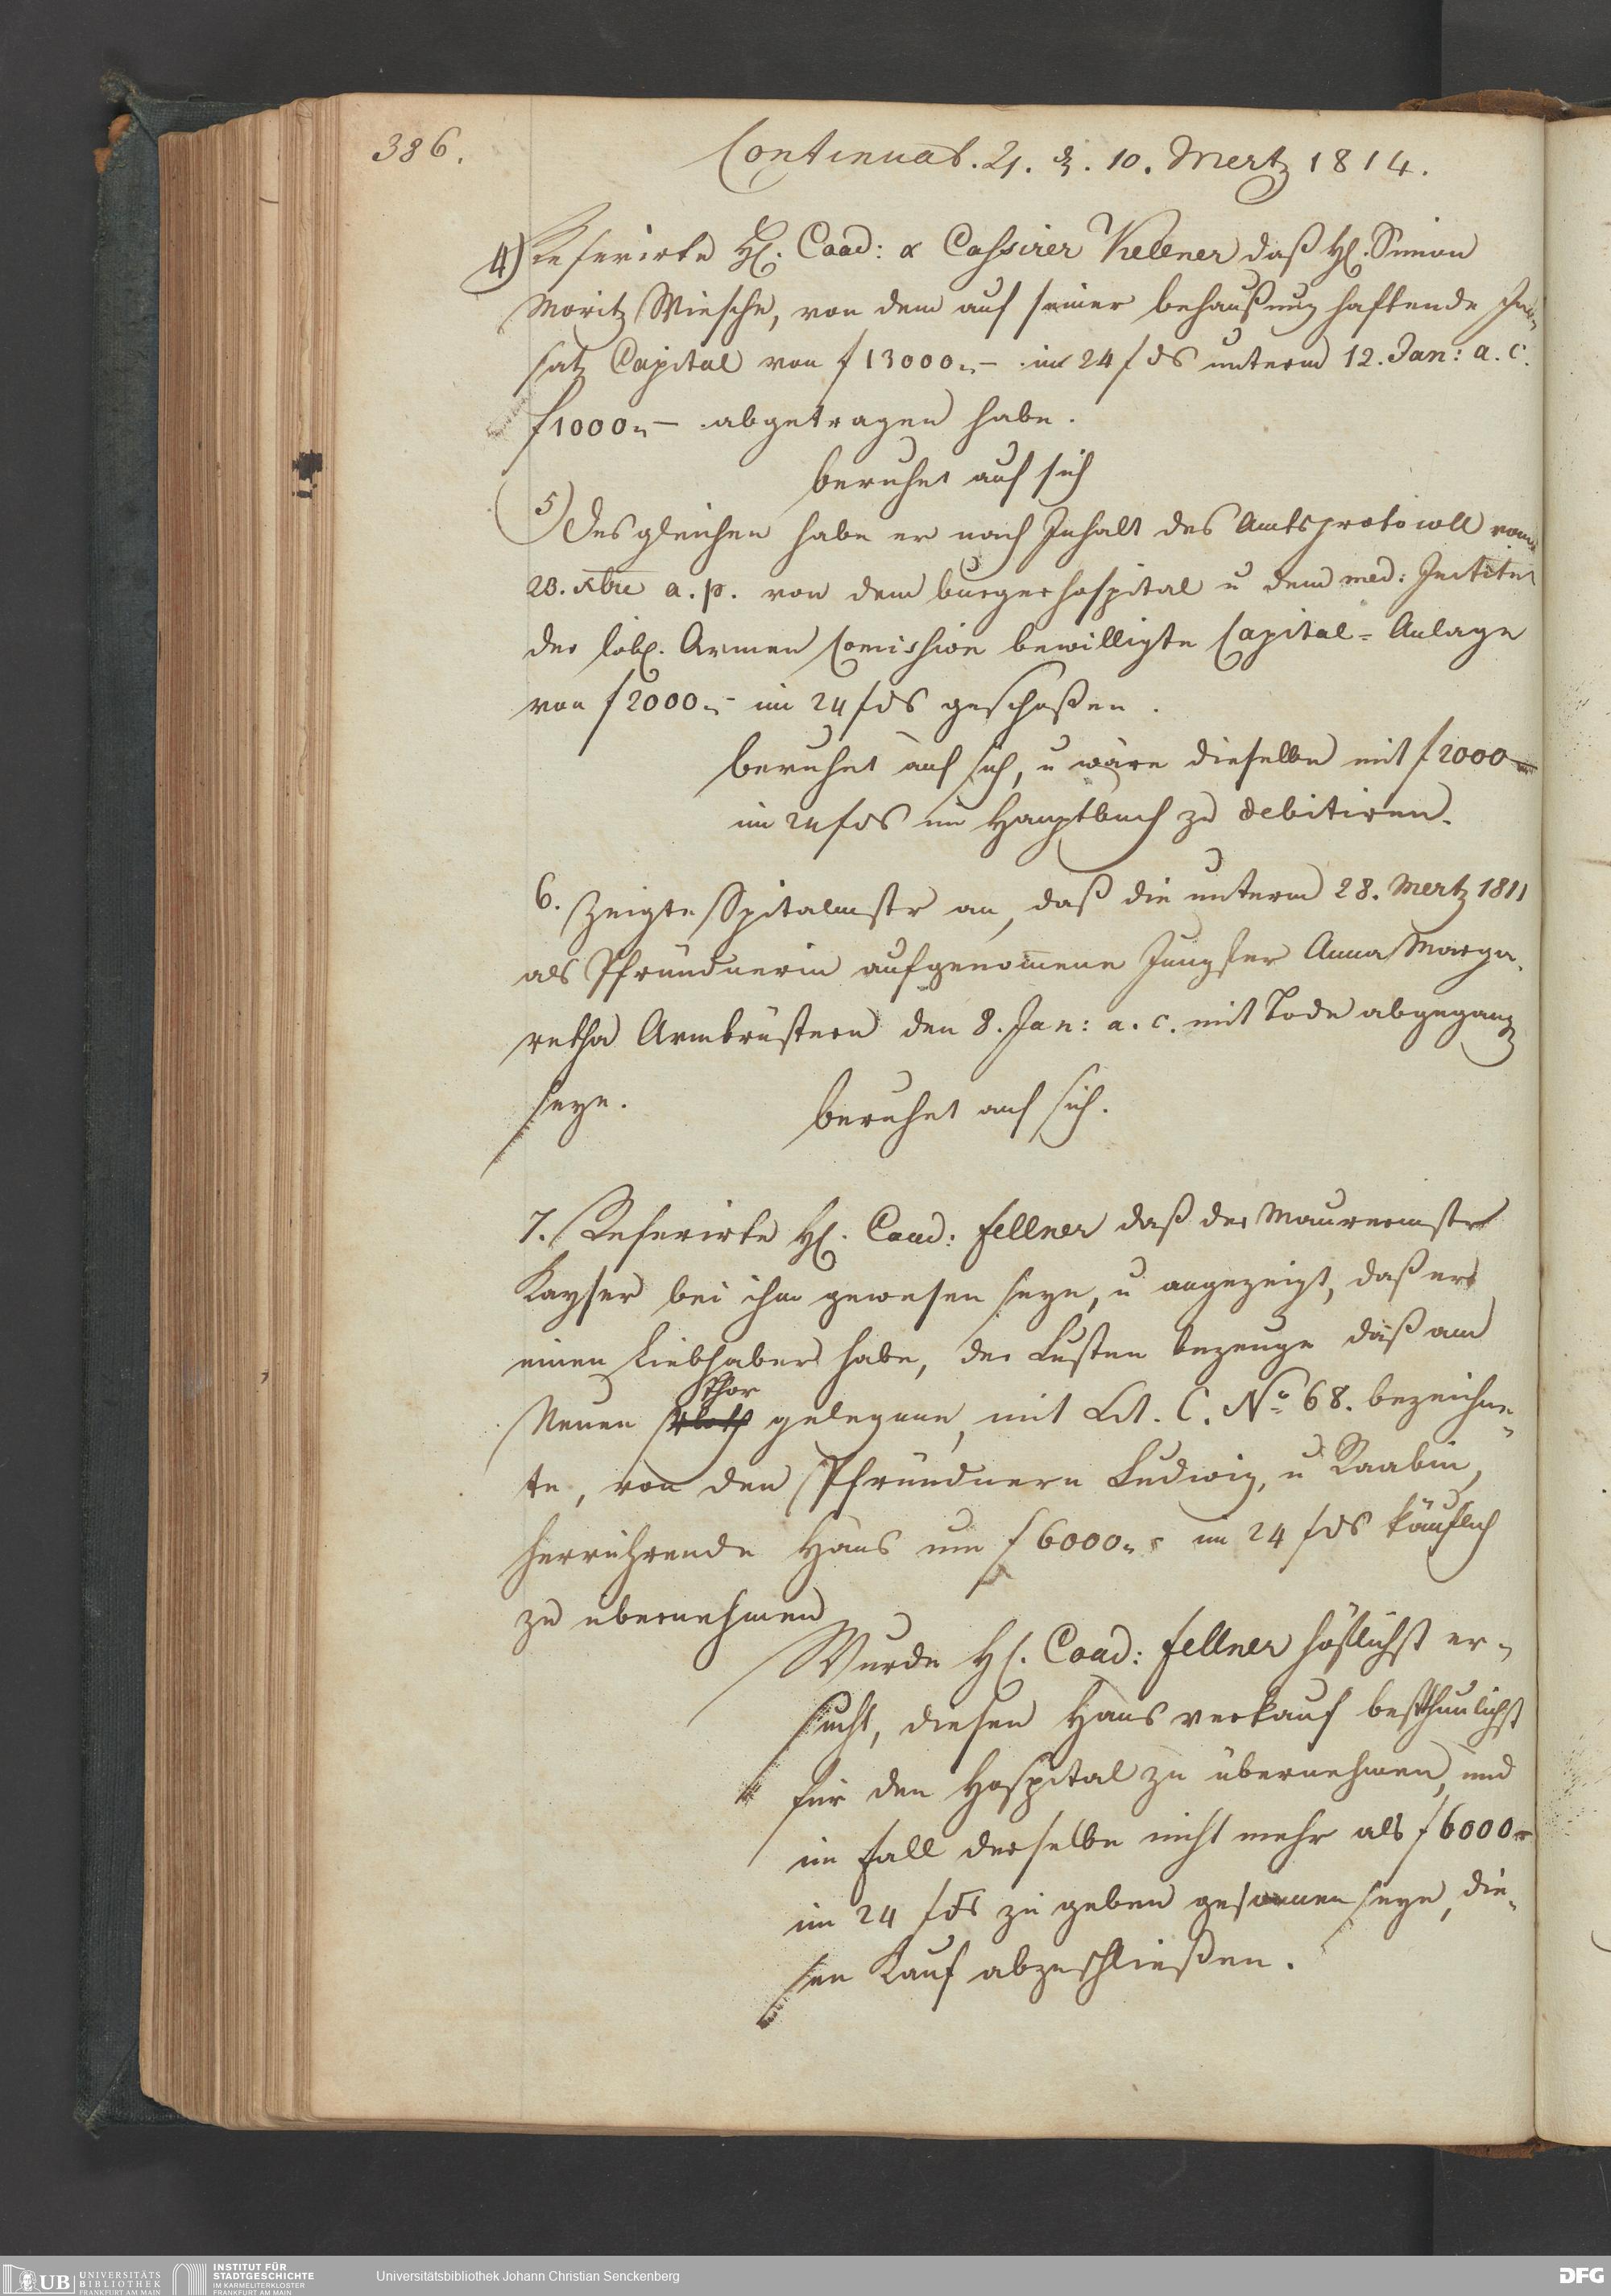 386.
Continuat. 21. d. 10. Mertz 1814.
4) Referirte H. Cand: & Cassirer Kellner daß H. Simon
Moritz Miesche, von dem auf seiner behaußung haftende In-
satz Capital von f 13000.– im 24 f ds unterm 12. Jan: a. c.
f 1000.– abgetragen habe.
beruhet auf sich
5) Desgleichen habe er nach Inhalt des Amtsprotocoll vom
23. Xbre a. p. von dem burgerhospital u dem med: Institut
der löbl. Armen Comission bewilligte Capital-Anlage
von f 2000.– im 24 f ds geschoßen.
beruhet auf sich, u wäre dieselbe mit f 2000.–
im 24 f ds im Hauptbuch zu debitiren.
6. Zeigte Spitalmstr an, daß die unterm 28. Mertz 1811
als Pfründnerin aufgenomene Jungfer Anna Marga-
retha Armbrüstern den 8. Jan: a. c. mit Tode abgegang
seye.
beruhet auf sich.
7. Referirte H. Cand: Fellner daß der Maurermstr
Kayser bei ihm gewesen seye, u angezeigt, daß er
einen Liebhaber habe, der Lusten bezeuge daß am
Thor
Neuen gelegene, mit Lit. C. No 68. bezeichne-
te, von den Pfründnern Ludwig, u Raabin,
herrührende Haus um f 6000.– im 24 f ds käuflich
zu übernehmen
Wurde H. Cand: Fellner höflichst er-
sucht, diesen Hausverkauf bestthunlichst
für den Hospital zu übernehmen, und
im fall derselbe nicht mehr als f 6000.–
im 24 f ds zu geben gesonnen seye, die-
sen Kauf abzuschließen.
UB UNIVERSITÄTS
BIBLIOTHEK
FRANKFURT AM MAIN
INSTITUT FÜR
STADTGESCHICHTE
IM KARMELITERKLOSTER
FRANKFURT AM MAIN
Universitätsbibliothek Johann Christian Senckenberg
DFG